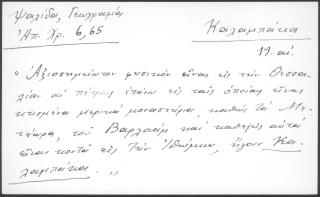 Ψαλίδα, Γεωγραμία
Ἀπ. Χρ. 6, 65
Καλαμπάκα
19. αἰ.
" Ἀξιοσημείωτον φυσικόν εἶναι εἰς τήν Θεσσα-
λίαν αἱ πέτραι ἐπάνω εἰς τάς ὁποίας εἶναι
κτισμένα μερικά μοναστήρια καθώς τά Με-
τέωρα, τοῦ Βαρλαάμ καί καθεξῆς αὐτά
εἶναι κοντά εἰς τήν Ἰθώμην, ἤγουν Κα-
λαμπάκα. "